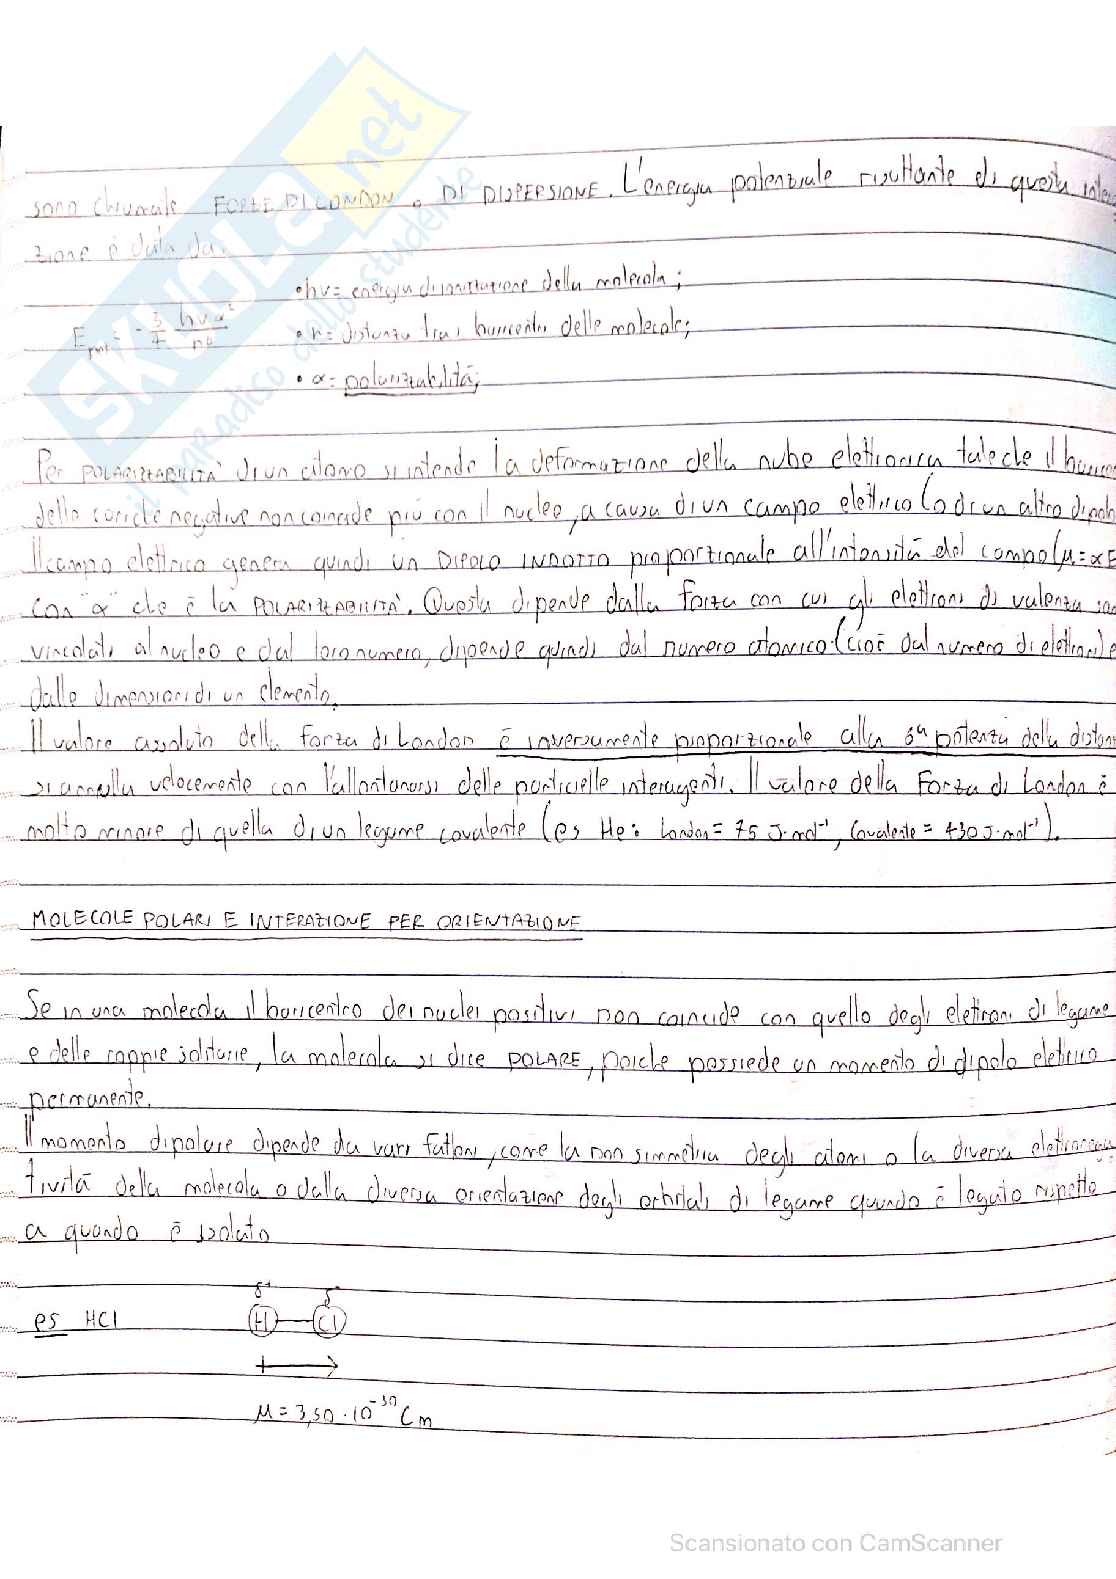 SKUOLA.net
il paradiso dello studente
sono chiamate FORZE DI LONDON o DI DISPERSIONE. L'energia potenziale risultante di questa intera
zione è data da:
• hν = energia di ionizzazione della molecola;
E pot = - 3/4 hνα² / r6
• r = distanza tra i baricentri delle molecole;
• α = polarizzabilità;
Per POLARIZZABILITA' di un atomo si intende la deformazione della nube elettronica tale che il baricen
delle cariche negative non coincide più con il nucleo, a causa di un campo elettrico (o di un altro dipolo
Il campo elettrico genera quindi un DIPOLO INDOTTO proporzionale all'intensità del campo (μ = αE
con "α" che è la POLARIZZABILITA'. Questa dipende dalla forza con cui gli elettroni di valenza sono
vincolati al nucleo e dal loro numero, dipende quindi dal numero atomico (cioè dal numero di elettroni) e
dalle dimensioni di un elemento.
Il valore assoluto della forza di London è inversamente proporzionale alla 6ª potenza della distan
si annulla velocemente con l'allontanarsi delle particelle interagenti. Il valore della Forza di London è
molto minore di quella di un legame covalente (es He: London = 75 J·mol⁻¹, Covalente = 430 J·mol⁻¹).
MOLECOLE POLARI E INTERAZIONE PER ORIENTAZIONE
Se in una molecola il baricentro dei nuclei positivi non coincide con quello degli elettroni di legame
e delle coppie solitarie, la molecola si dice POLARE, poiche possiede un momento di dipolo elettrico
permanente.
Il momento dipolare dipende da vari fattori, come la non simmetria degli atomi o la diversa elettronega
tività della molecola o dalla diversa orientazione degli orbitali di legame quando è legato rispetto
a quando è isolato
δ+ δ-
es HCl H Cl
μ = 3,50 · 10⁻³⁰ C m
Scansionato con CamScanner